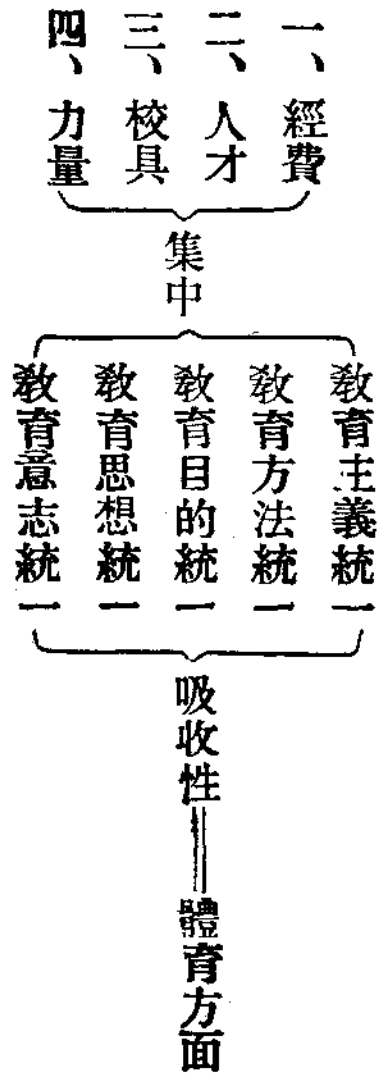 一、經費
二、人才
三、校具
四、力量
集中
教育主義統一
教育方法統一
教育目的統一
教育思想統一
教育意志統一
吸收性
體育方面